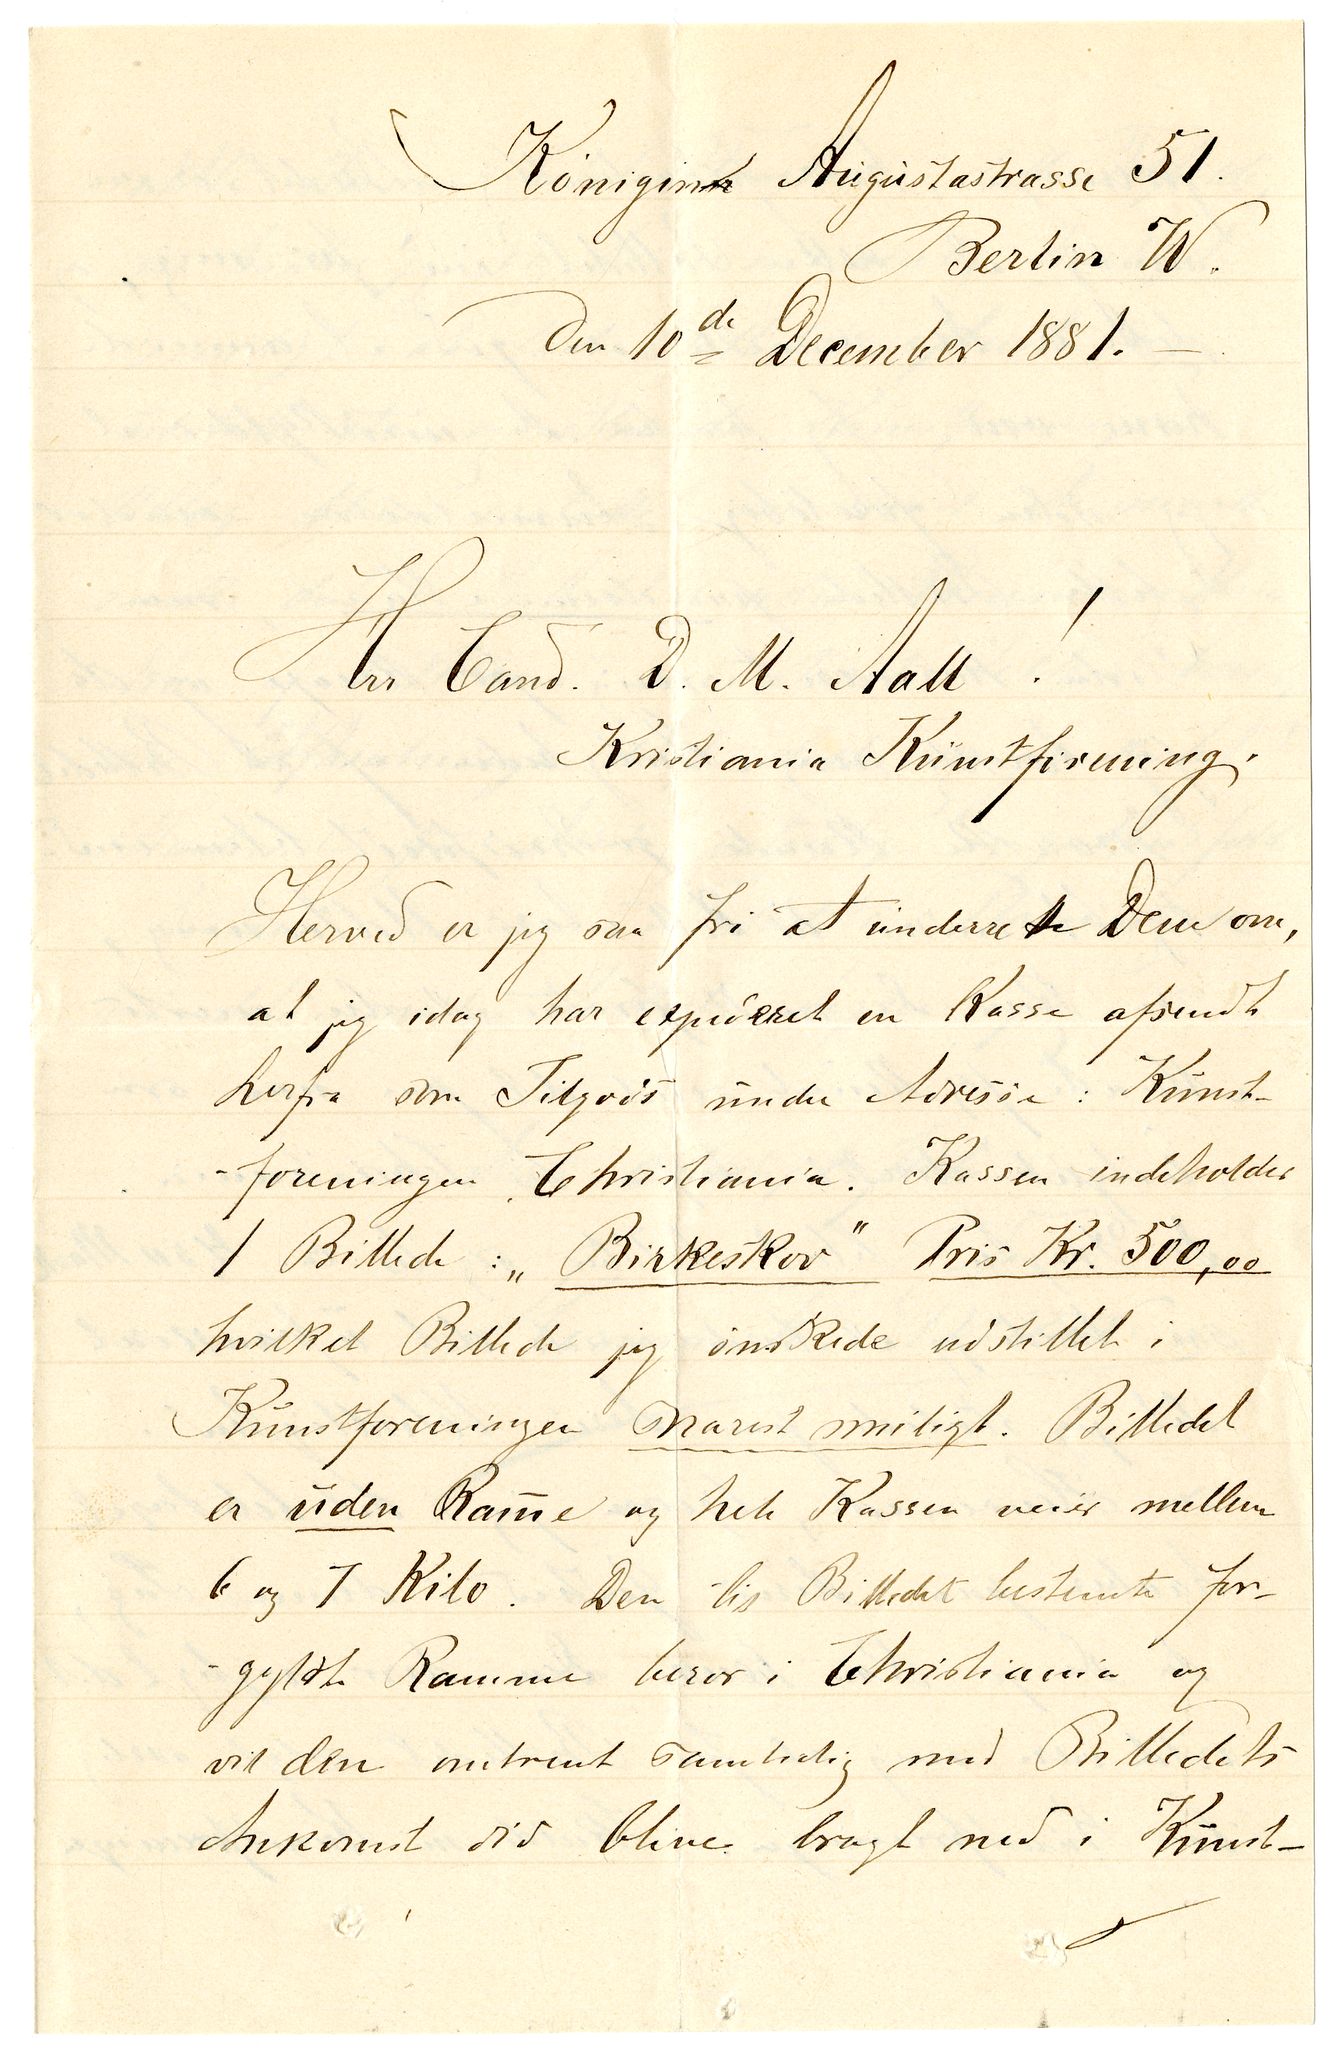 Königin Augustastrasse 51.
Berlin W.
Den 10de December 1881. —
Herr Cand. D. M. Aall !
Kristiania Kunstforening.
Herved er jeg saa fri at underrette Dem om,
at jeg idag har expederet en Kasse afsendt
herfra som Ilgods under Adresse: Kunst-
-foreningen Christiania. Kassen indeholder
1 Billede: „Birkeskov" Pris Kr. 500,00
hvilket Billede jeg ønskede udstillet i
Kunstforeningen snarest muligt. Billedet
er uden Ramme og hele Kassen veier mellem
6 og 7 Kilo. Den til Billedet bestemte for-
-gyldte Ramme beror i Christiania og
vil den omtrent samtidig med Billedets
Ankomst did blive bragt ned i Kunst-